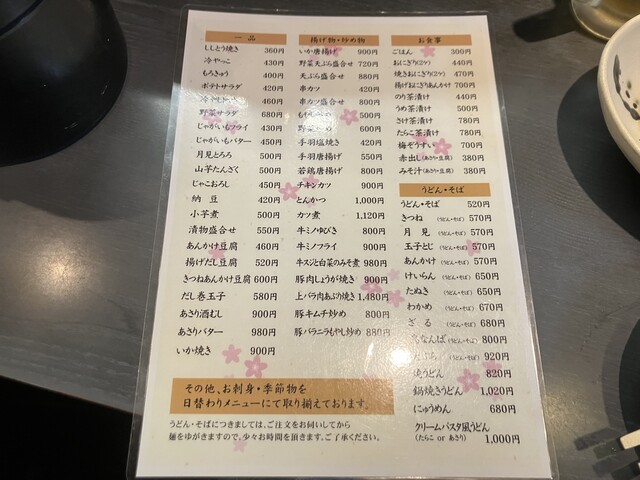 一品
ししとう焼き 360円
冷やっこ 430円
もろきゅう 400円
ポテトサラダ 420円
冷やしトマト 460円
野菜サラダ 680円
じゃがいもフライ 430円
じゃがいもバター 450円
月見とろろ 500円
山芋たんざく 500円
じゃこおろし 450円
納豆 420円
小芋煮 500円
漬物盛合せ 550円
あんかけ豆腐 460円
揚げだし豆腐 520円
きつねあんかけ豆腐 600円
だし巻玉子 580円
あさり酒むし 900円
あさりバター 980円
いか焼き 900円
揚げ物・炒め物
いか唐揚げ 900円
野菜天ぷら盛合せ 720円
天ぷら盛合せ 880円
串カツ 420円
串カツ盛合せ 800円
もやし炒め 500円
野菜炒め 600円
手羽塩焼き 420円
手羽唐揚げ 550円
若鶏唐揚げ 800円
チキンカツ 900円
とんかつ 1,000円
カツ煮 1,120円
牛ミノゆびき 800円
牛ミノフライ 900円
牛スジと白菜のみそ煮 980円
豚肉しょうが焼き 900円
上バラ肉あぶり焼き 1,480円
豚キムチ炒め 800円
豚バラニラもやし炒め 880円
お食事
ごはん 300円
おにぎり(2ケ) 440円
焼きおにぎり(2ケ) 470円
揚げおにぎりあんかけ 700円
のり茶漬け 440円
うめ茶漬け 500円
さけ茶漬け 780円
たらこ茶漬け 780円
梅ぞうすい 700円
赤出し(あさり・豆腐) 380円
みそ汁(あさり・豆腐) 380円
うどん・そば
うどん・そば 520円
きつね (うどん・そば) 570円
月見 (うどん・そば) 570円
玉子とじ (うどん・そば) 570円
あんかけ (うどん・そば) 570円
けいらん (うどん・そば) 650円
たぬき (うどん・そば) 650円
わかめ (うどん・そば) 670円
ざる (うどん・そば) 680円
なんば (うどん・そば) 800円
(うどん・そば) 920円
焼うどん 820円
鍋焼きうどん 1,020円
にゅうめん 680円
クリームパスタ風うどん
(たらこ or あさり) 1,000円
その他、お刺身・季節物を
日替わりメニューにて取り揃えております。
うどん・そばにつきましては、ご注文をお伺いしてから
麺をゆがきますので、少々お時間を頂きます。ご了承ください。